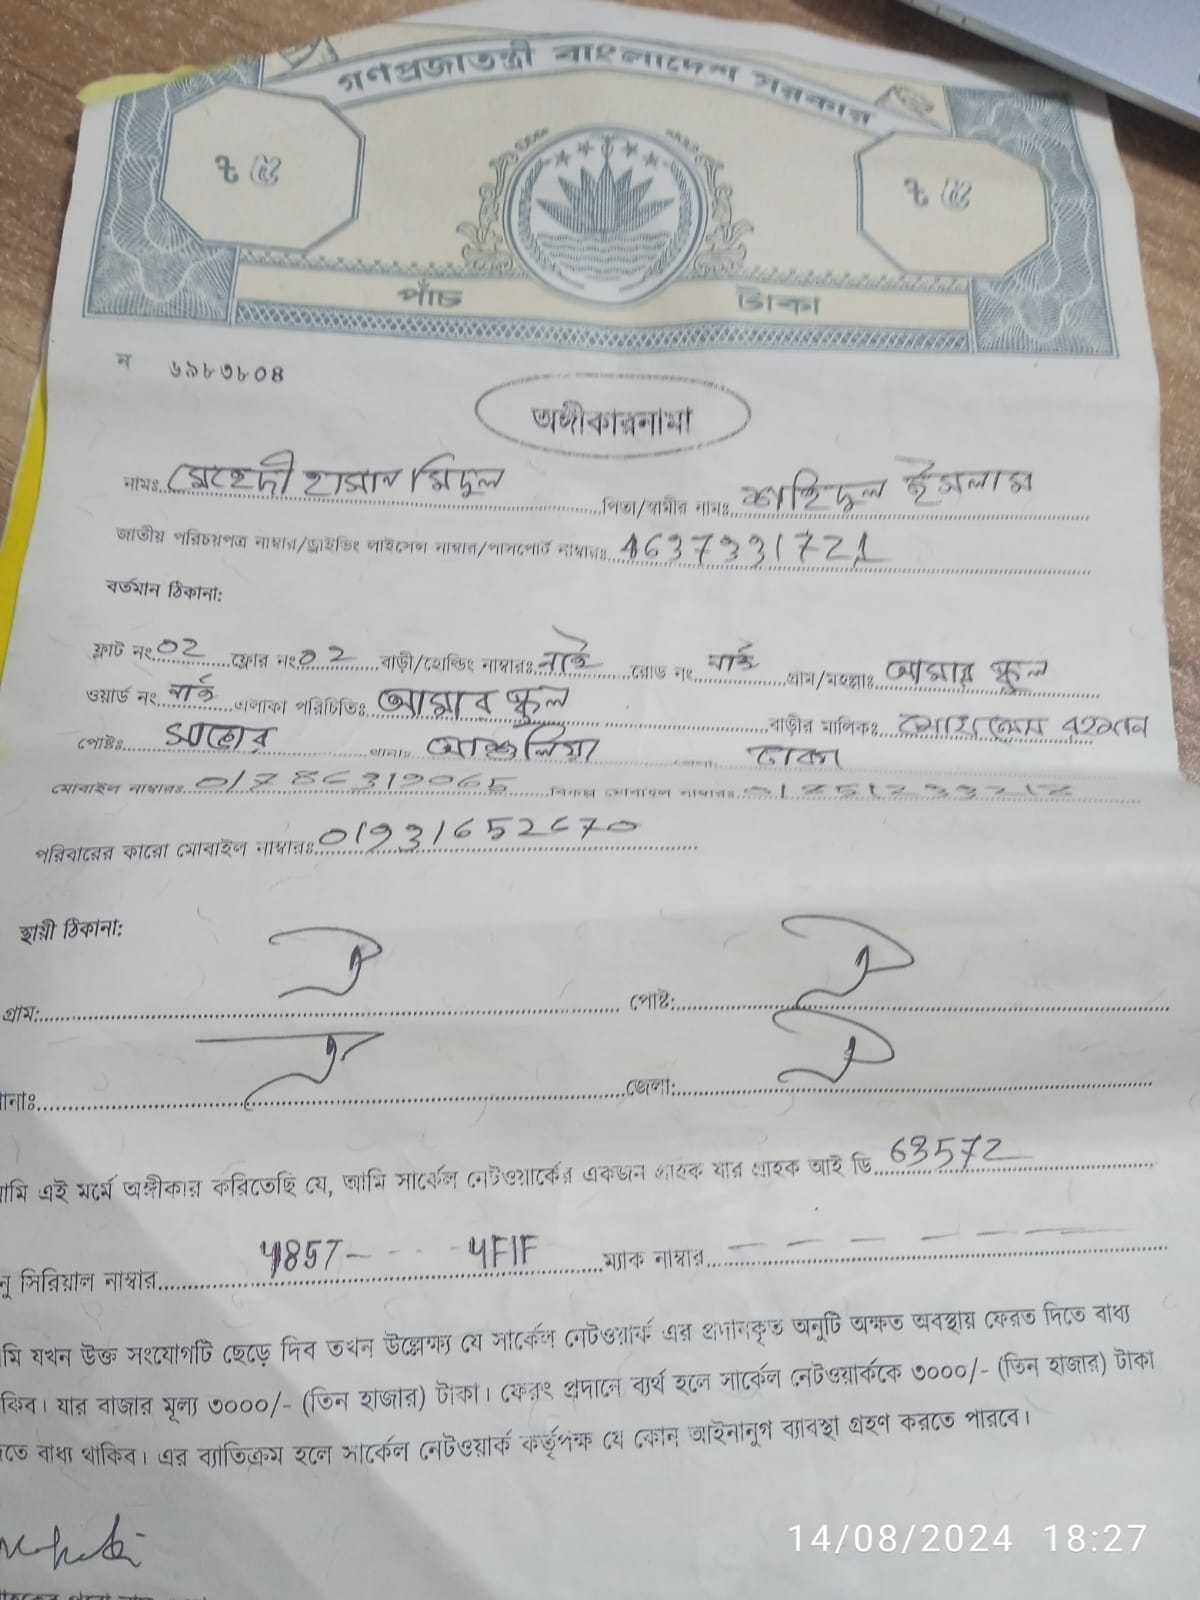 গণপ্রজাতন্ত্রী বাংলাদেশ সরকার
৳ ৫ ৳ ৫
পাঁচ টাকা
ন ৬৯৮৩৮০৪
অঙ্গীকারনামা
নামঃ মেহেদী হাসান মিদুল পিতা/স্বামীর নামঃ শাহিদুল ইসলাম
জাতীয় পরিচয়পত্র নাম্বার/ড্রাইভিং লাইসেন্স নাম্বার/পাসপোর্ট নাম্বারঃ 4637331721
বর্তমান ঠিকানা:
ফ্লাট নং 02 ফ্লোর নং 02 বাড়ী/হোল্ডিং নাম্বারঃ নাই রোড নং নাই গ্রাম/মহল্লাঃ আমার স্কুল
ওয়ার্ড নং নাই এলাকা পরিচিতিঃ আমার স্কুল বাড়ীর মালিকঃ
পোষ্টঃ সাভার থানাঃ আশুলিয়া ঢাকা
মোবাইল নাম্বারঃ বিকল্প মোবাইল নাম্বারঃ
পরিবারের কারো মোবাইল নাম্বারঃ 01931652670
স্থায়ী ঠিকানা:
গ্রাম: পোষ্ট:
নাঃ জেলা:
মি এই মর্মে অঙ্গীকার করিতেছি যে, আমি সার্কেল নেটওয়ার্কের একজন গ্রাহক যার গ্রাহক আই ডি 63572
নু সিরিয়াল নাম্বার 4857- - - - 4F1F ম্যাক নাম্বার - - - - - -
মি যখন উক্ত সংযোগটি ছেড়ে দিব তখন উল্লেক্ষ্য যে সার্কেল নেটওয়ার্ক এর প্রদানকৃত অনুটি অক্ষত অবস্থায় ফেরত দিতে বাধ্য
কিব। যার বাজার মূল্য ৩০০০/- (তিন হাজার) টাকা। ফেরৎ প্রদানে ব্যর্থ হলে সার্কেল নেটওয়ার্ককে ৩০০০/- (তিন হাজার) টাকা
তে বাধ্য থাকিব। এর ব্যাতিক্রম হলে সার্কেল নেটওয়ার্ক কর্তৃপক্ষ যে কোন আইনানুগ ব্যাবস্থা গ্রহণ করতে পারবে।
14/08/2024 18:27